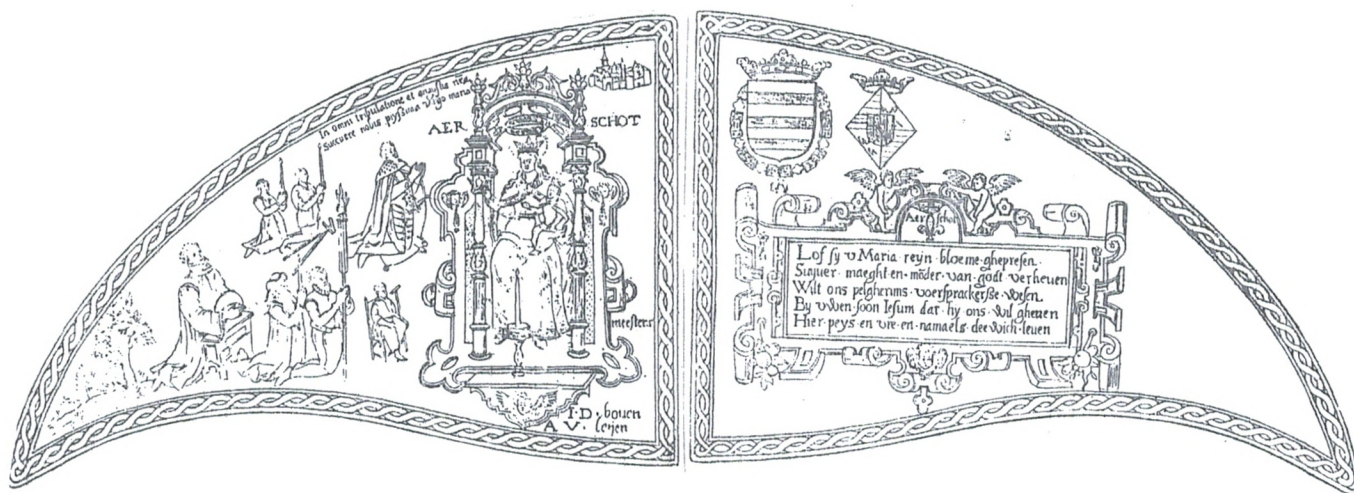 In omni tribulatione et angustia
Succurre nobis pyssima virgo maria
AER SCHOT
meesters
I·D· bouen
A V· leijen
Aer schot
Lof sy v Maria reyn bloeme ghepresen
Suyuer maeght en mōder van godt verheuen
Wilt ons pelgherims voersprackersse wesen
By vwen soon Iesum dat hy ons wil gheuen
Hier peys en vre en namaels dee wich leuen